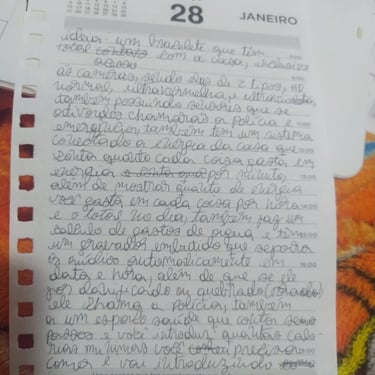 28 JANEIRO
ideia: um bracelete que tem
total contato com a casa, inclusive
acesso
as cameras, sendo elas de 2 tipos, HD
normal, ultravermelha e ultravioleta,
também possuindo sensores que se
ativados chamarais a polícia e
emergência, também tem um sistema
conectado a energia da casa que
conta quanto cada coisa gasta em
energia e conta por minuto,
além de mostrar quanto de energia
você gasta em cada coisa por hora
e o total no dia, também faz um
calculo de gastos de agua e tem
um gravador embutido que separa
os audios automaticamente em
data e hora, além de que se ele
for danificado ou quebrado
ele chama a polícia, também
a um espaço saúde que contor seus
passos e você introduz quantas calo-
rias minimas você comer precisar
comer e vai introduzindo como